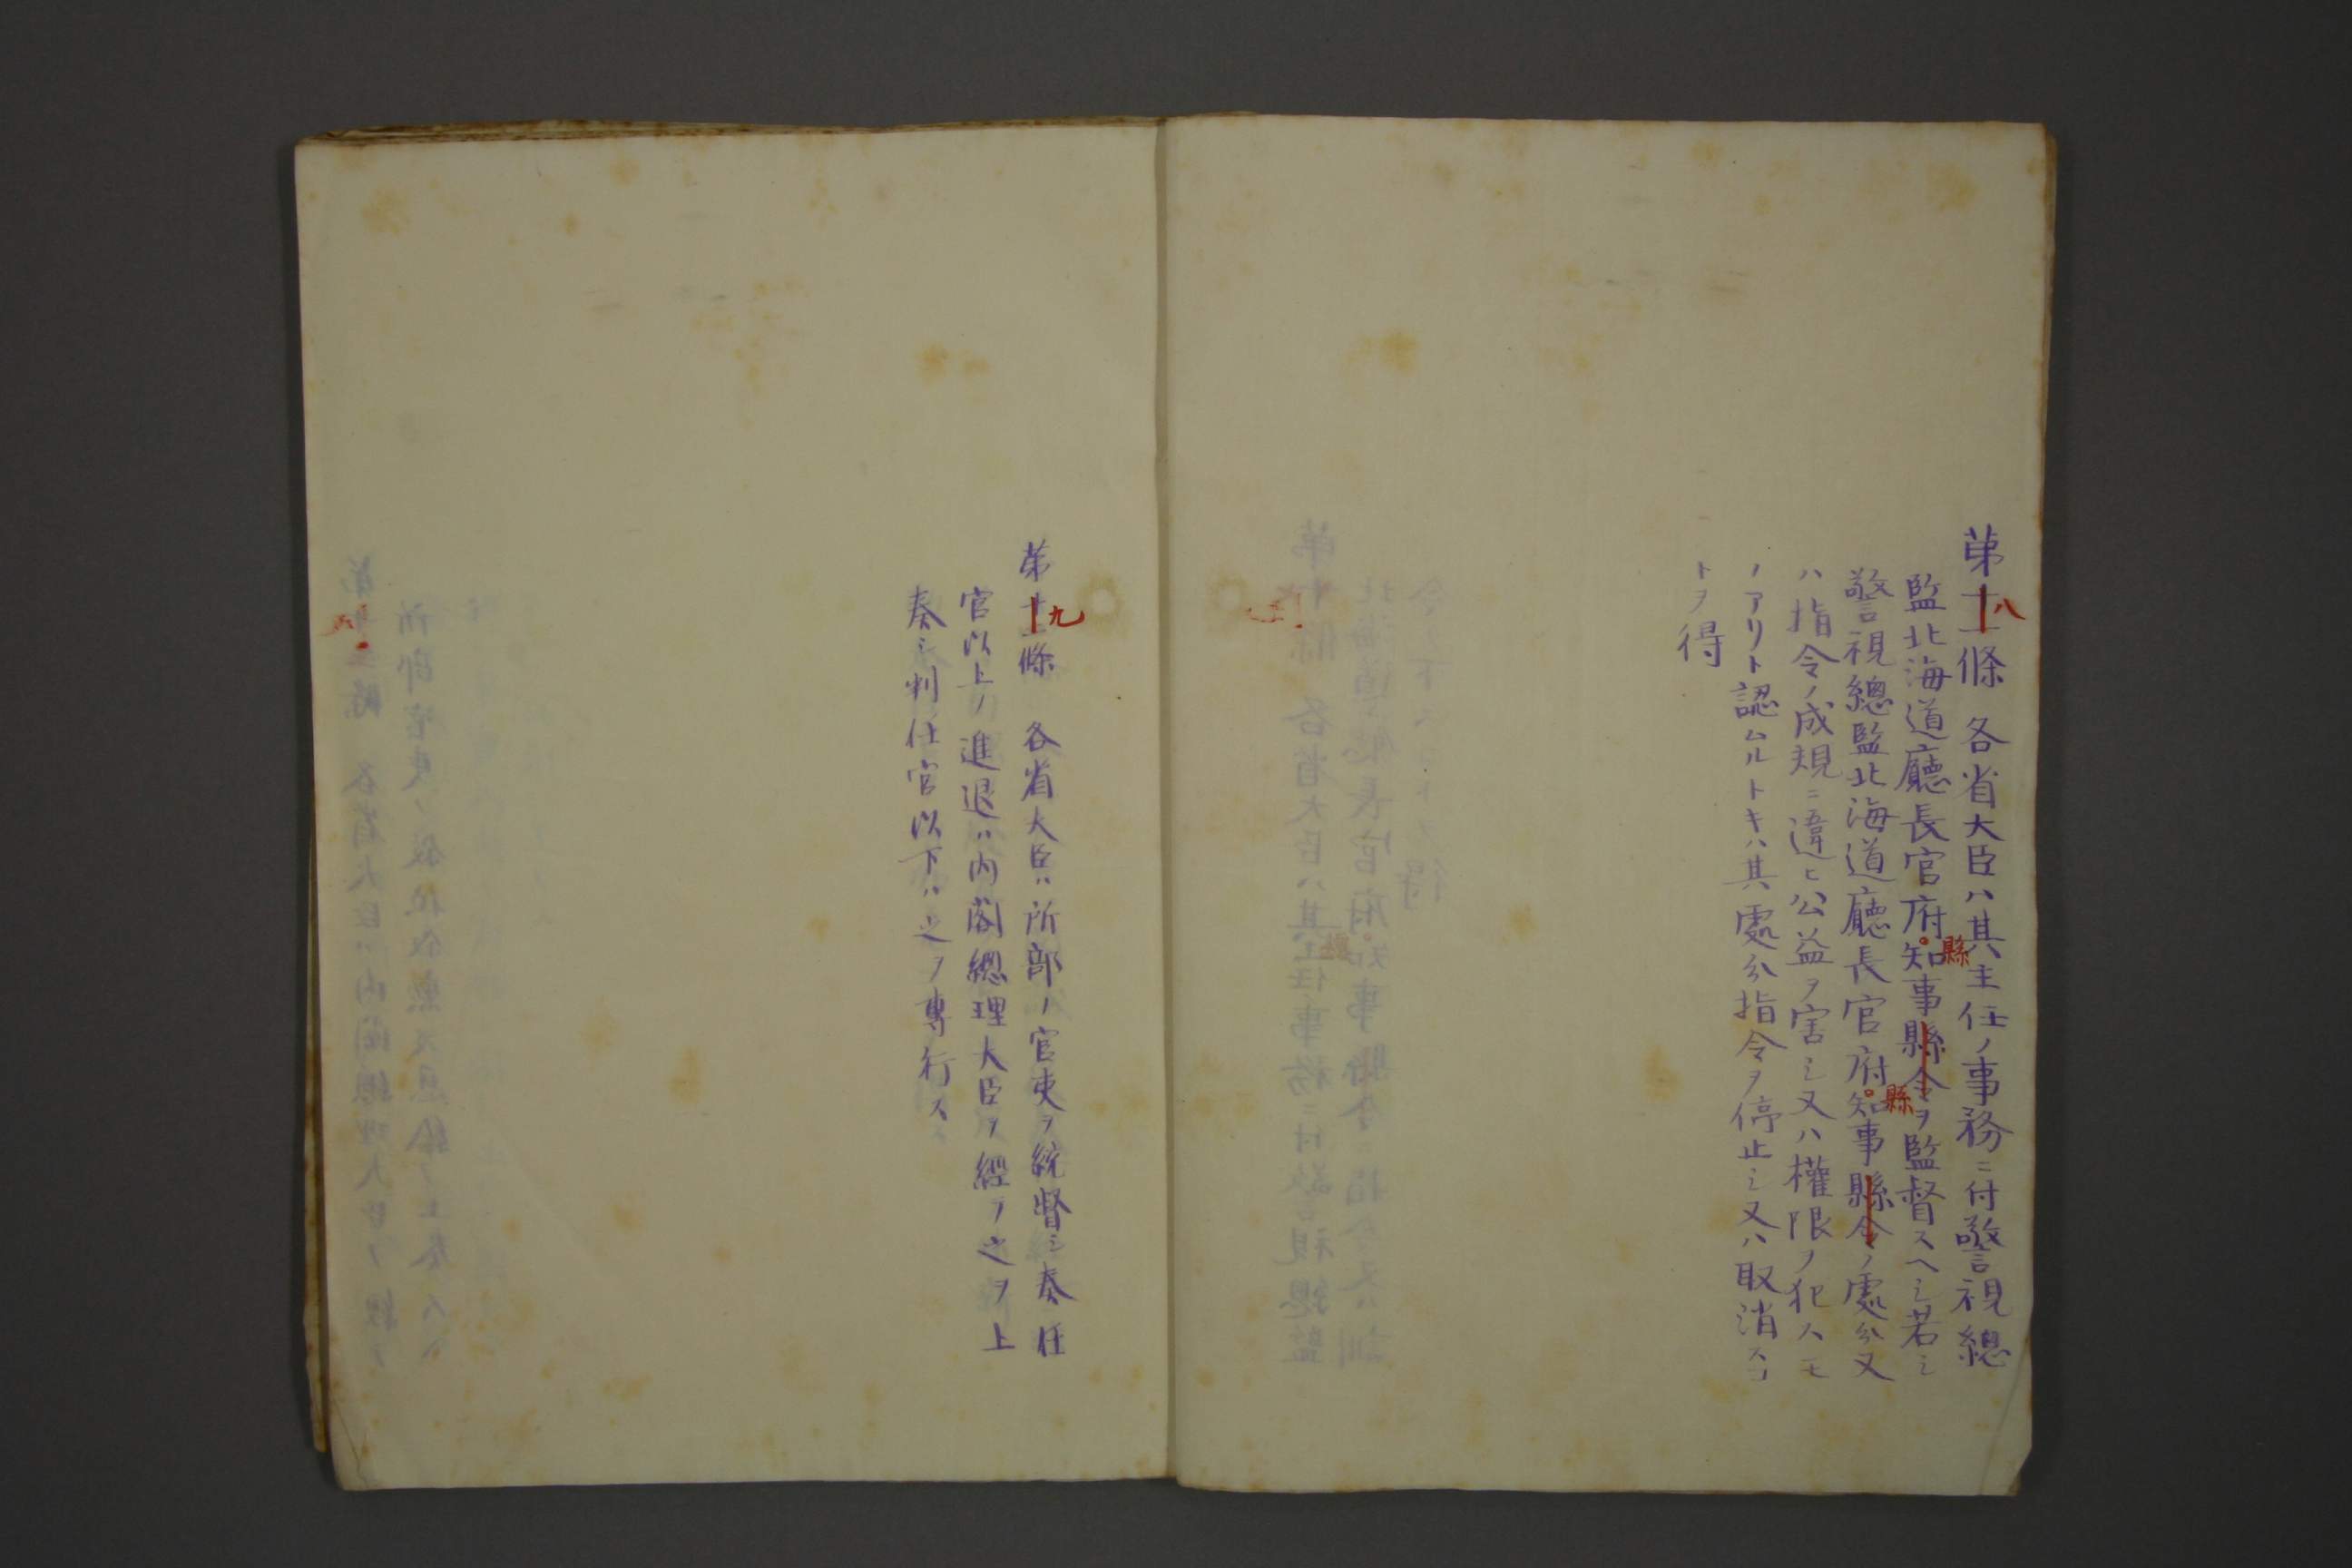 第十一八條 各省大臣ハ其主任ノ事務ニ付警視總
監北海道廳長官府縣知事縣令ヲ監督スヘシ若シ
警視總監北海道廳長官府縣知事縣令ノ處分又
ハ指令ノ成規ニ違ヒ公益ヲ害シ又ハ權限ヲ犯スモ
ノアリト認ムルトキハ其處分指令ヲ停止シ又ハ取消スコ
トヲ得
第十二九條 各省大臣ハ所部ノ官吏ヲ統督シ奏任
官以上ノ進退ハ内閣總理大臣ヲ經テ之ヲ上
奏シ判任官以下ハ之ヲ專行ス